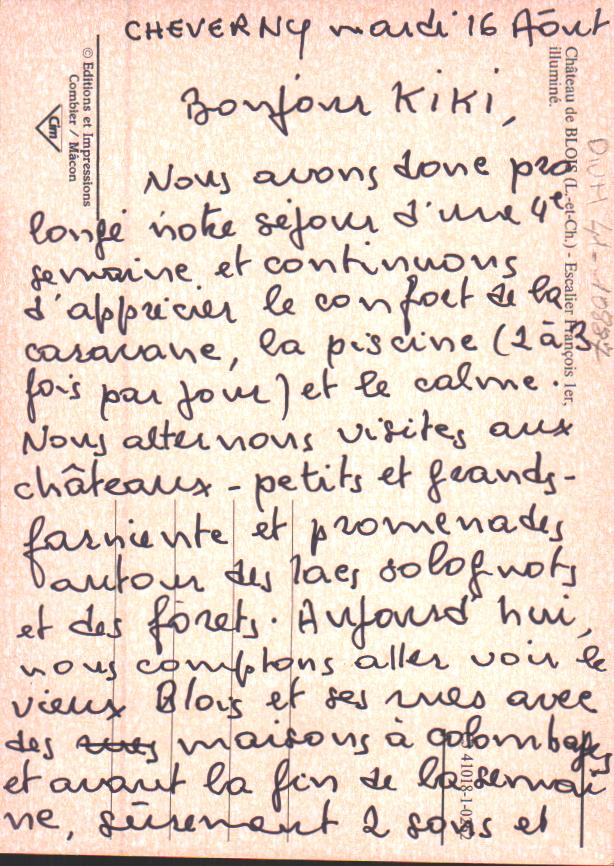 CHEVERNY mardi 16 Août
Bonjour KIKI,
Nous avons donc pro
longé notre séjour d'une 4e
semaine et continuons
d'apprécier le confort de la
caravane, la piscine (2 à 3
fois par jour) et le calme.
Nous alternons visites aux
châteaux - petits et grands -
farniente et promenades
autour des lacs solognots
et des forêts. Aujourd'hui,
nous comptons aller voir le
vieux Blois et ses rues avec
des rues maisons à colombages
et avant la fin de la semai
ne, sûrement 2 sons et
© Editions et Impressions
Combier / Mâcon
Cim
Château de BLOIS (L.-et-Ch.) - Escalier François 1er,
illuminé.